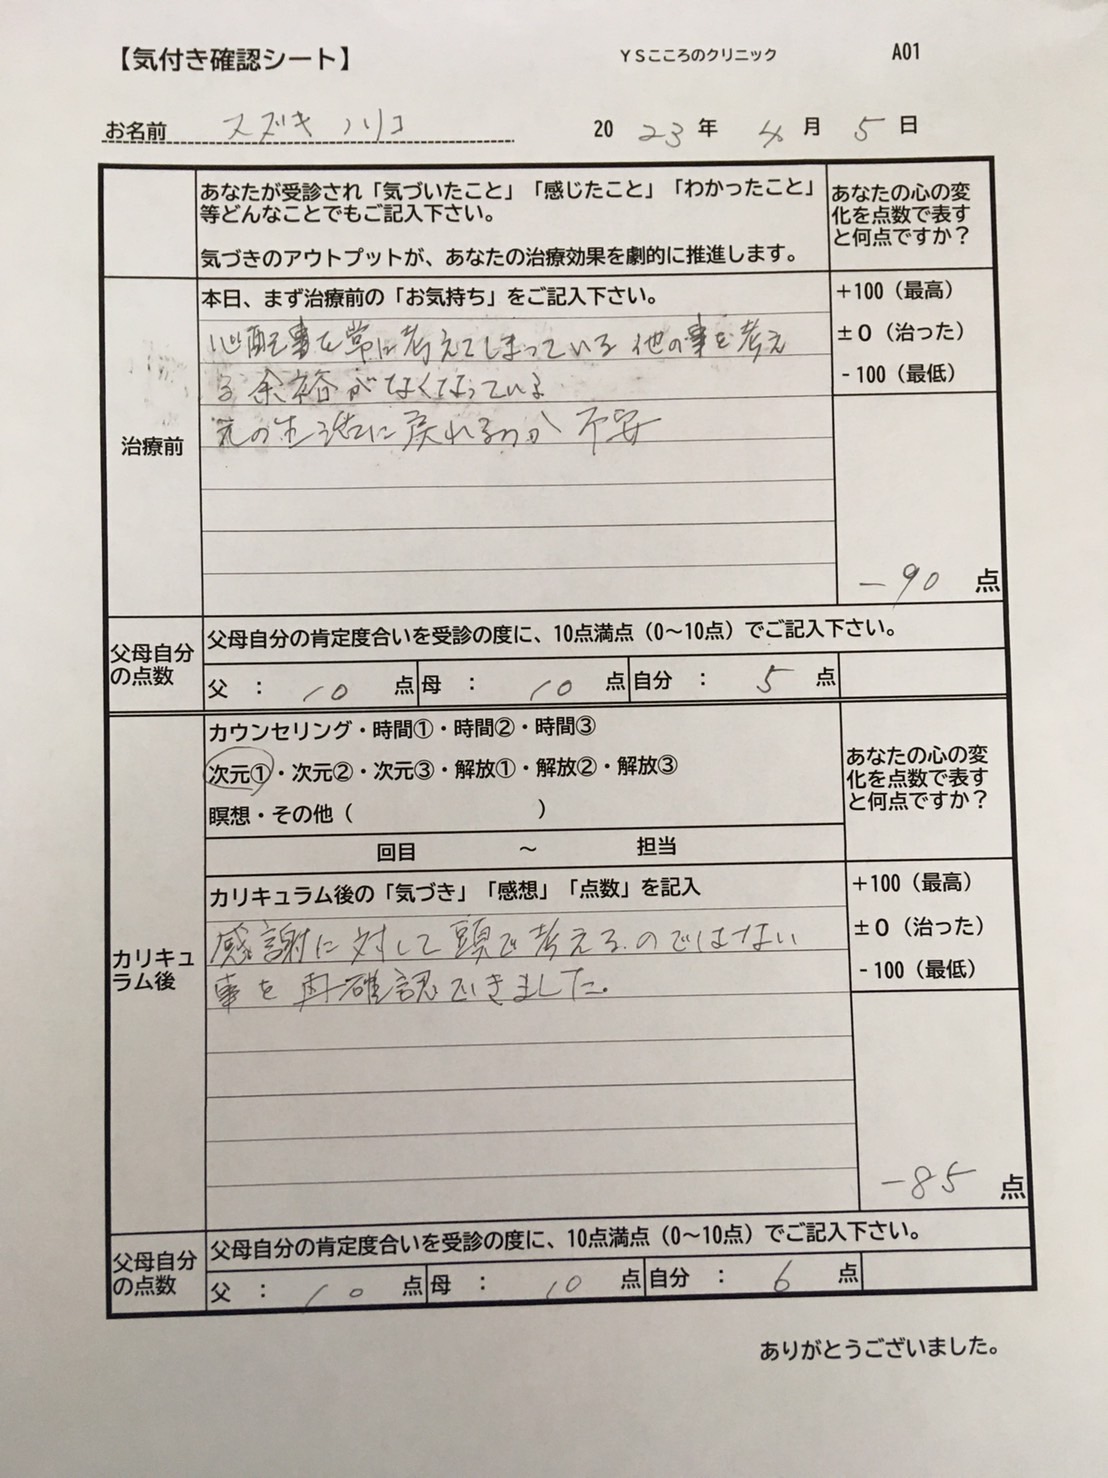 【気付き確認シート】 YSこころのクリニック A01
お名前 スズキ ノリコ 2023年 4月 5日
あなたが受診され「気づいたこと」「感じたこと」「わかったこと」
等どんなことでもご記入下さい。
気づきのアウトプットが、あなたの治療効果を劇的に推進します。
あなたの心の変
化を点数で表す
と何点ですか？
治療前
本日、まず治療前の「お気持ち」をご記入下さい。
心配事を常に考えてしまっている 他の事を考え
る余裕がなくなっている
元の生活に戻れるのか 不安
+100（最高）
±0（治った）
-100（最低）
-90 点
父母自分
の点数
父母自分の肯定度合いを受診の度に、10点満点（0～10点）でご記入下さい。
父 ： 10 点 母 ： 10 点 自分 ： 5 点
カリキュ
ラム後
カウンセリング・時間①・時間②・時間③
次元①・次元②・次元③・解放①・解放②・解放③
瞑想・その他（ ）
回目 ～ 担当
あなたの心の変
化を点数で表す
と何点ですか？
カリキュラム後の「気づき」「感想」「点数」を記入
感謝に対して頭で考えるのではない
事を再確認できました。
+100（最高）
±0（治った）
-100（最低）
-85 点
父母自分
の点数
父母自分の肯定度合いを受診の度に、10点満点（0～10点）でご記入下さい。
父 ： 10 点 母 ： 10 点 自分 ： 6 点
ありがとうございました。